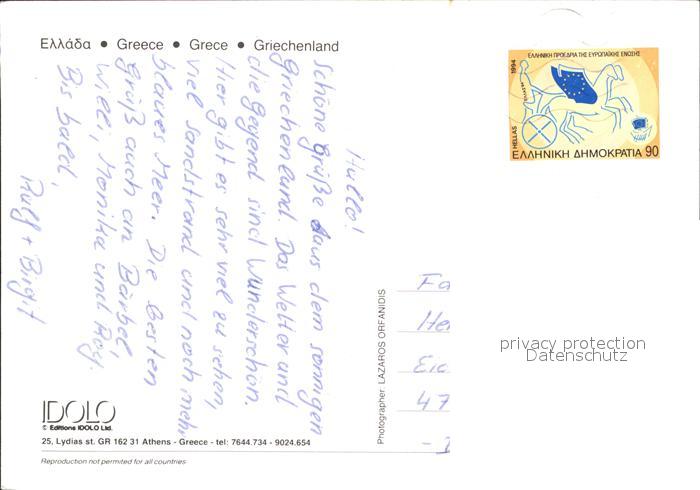 Ελλάδα • Greece • Grece • Griechenland
Hallo!
Schöne Grüße aus dem sonnigen
Griechenland. Das Wetter und
die Gegend sind Wunderschön.
Hier gibt es sehr viel zu sehen,
viel Sandstrand und noch mehr
blaues Meer. Die Besten
Grüß auch an Bärbel,
Willi, Monika und
Bis bald,
Rulf + Birgit
1994
ΕΛΛΗΝΙΚΗ ΠΡΟΕΔΡΙΑ ΤΗΣ ΕΥΡΩΠΑΪΚΗΣ ΕΝΩΣΗΣ
HELLAS
ΕΛΛΗΝΙΚΗ ΔΗΜΟΚΡΑΤΙΑ 90
Photographer: LAZAROS ORFANIDIS
Fa
He
Eic
47
privacy protection
Datenschutz
IDOLO
© Editions IDOLO Ltd.
25, Lydias st. GR 162 31 Athens - Greece - tel: 7644.734 - 9024.654
Reproduction not permited for all countries